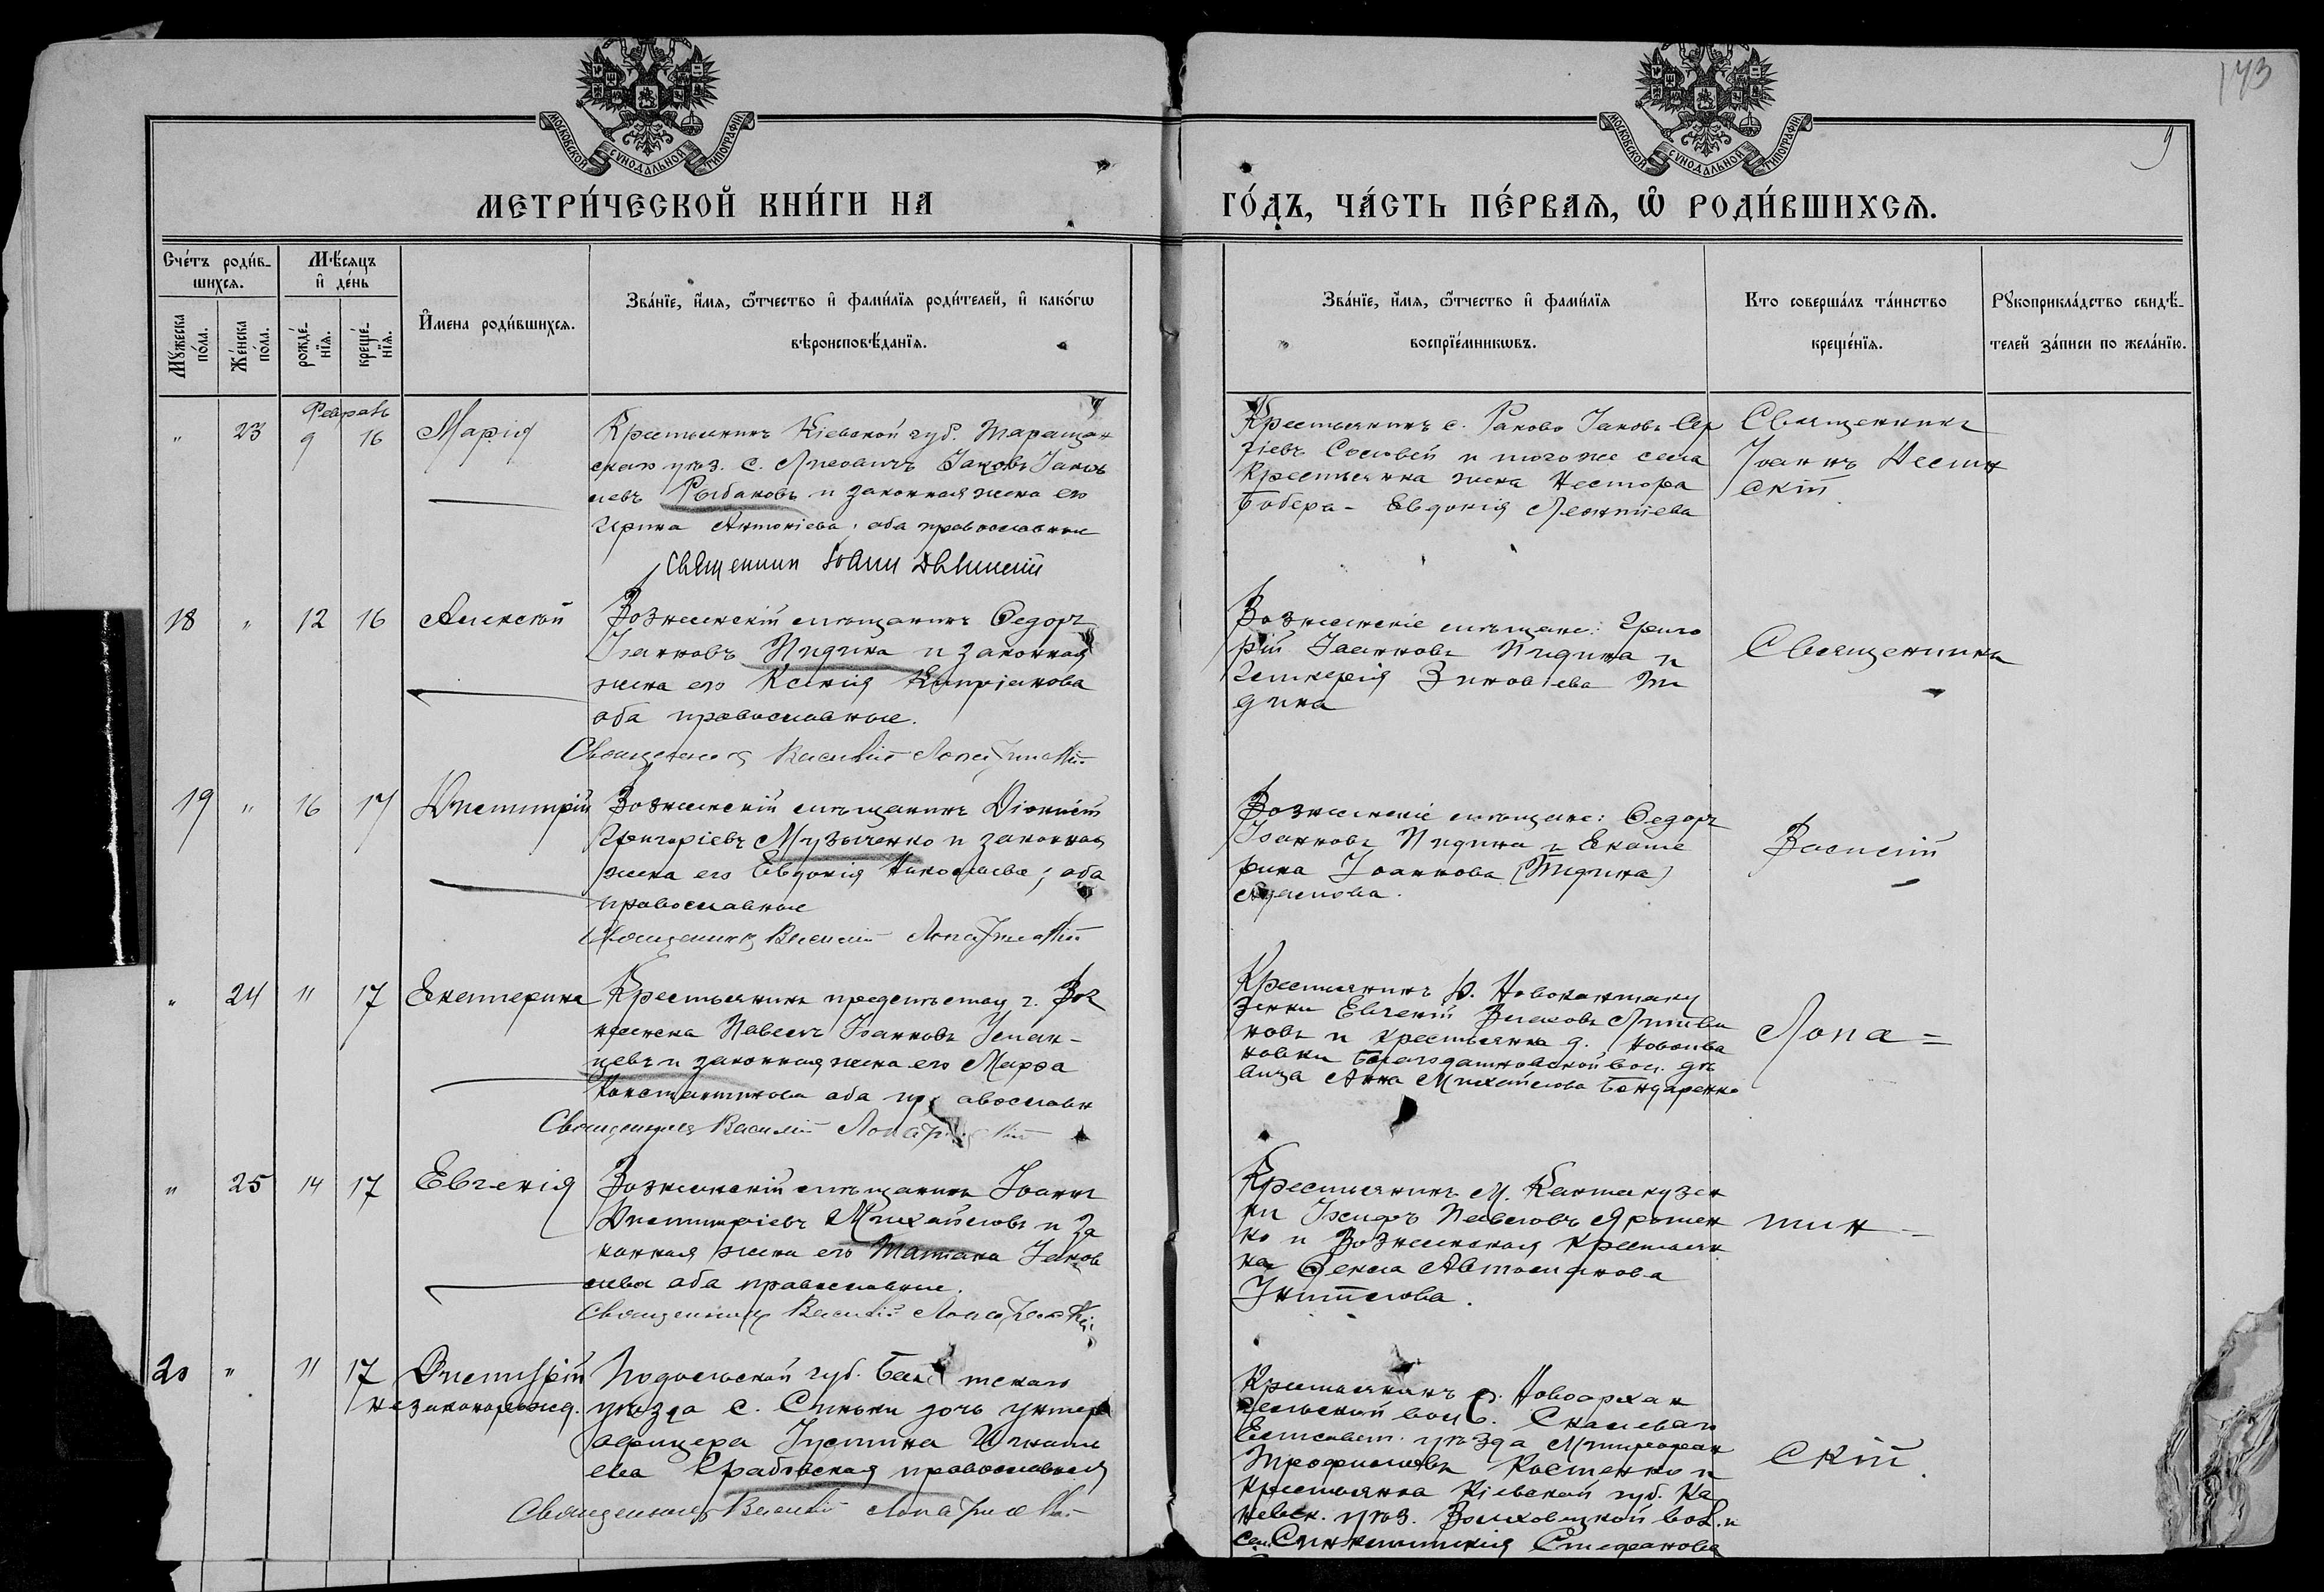 173
9
МОСКОВСКОЙ СУНОДАЛЬНОЙ ТИПОГРАФІИ
МОСКОВСКОЙ СУНОДАЛЬНОЙ ТИПОГРАФІИ
МЕТРИ́ЧЕСКОЙ КНИ́ГИ НА
ГО́ДЪ, ЧА́СТЬ ПЕ́РВАЯ, Ѽ РОДИ́ВШИХСЯ.
Сче́тъ роди́в-
шихся.
Мѣ́сяцъ
и҆ де́нь
Му́жеска по́ла.
Же́нска по́ла.
рожде́-нїя.
креще́-нїя.
И҆мена роди́вшихся.
Зва́нїе, и҆́мя, ѻ҆́тчество и҆ фами́лїя роди́телей, и҆ како́гѡ
вѣроисповѣ́данїя.
Зва́нїе, и҆́мя, ѻ҆́тчество и҆ фами́лїя
воспрїе́мникѡвъ.
Кто соверша́лъ та́инство
креще́нїя.
Рꙋкоприкла́дство свидѣ́-
телей за́писи по жела́нїю.
Февраль
" 23 9 16 Марія
Крестьянинъ Кіевской губ. Таращан
скаго уѣз. с. Лисовичъ Іаковъ Іаков
левъ Рыбаковъ и законная жена его
Ирина Антоніева, оба православные
Священник Іоанн
Крестьянинъ с. Раково Іаковъ Сер
гіевъ Соловей и того же села
крестьянка жена Нестора
Бобера - Евдокія Леонтіева
Священникъ
Іоаннъ
скій
18 " 12 16 Алексѣй
Вознесенскій мѣщанинъ Ѳедоръ
Іоанновъ Пидина и законная
жена его Ксенія Кипріанова
оба православные.
Священникъ Василій Лопатинскій
Вознесенскіе мѣщане: Григо
рій Іоанновъ Пидина и
Гликерія Зиновіева Пи
дина
Священникъ
19 " 16 17 Димитрій
Вознесенскій мѣщанинъ Діонисій
Григоріевъ Музыченко и законная
жена его Евдокія Николаева; оба
православные
Священникъ Василій Лопатинскій
Вознесенскіе мѣщане: Ѳедоръ
Іоанновъ Пидина и Екате
рина Іоаннова (Пидина)
Адамова.
Василій
" 24 11 17 Екатерина
Крестьянинъ предмѣстья г. Воз
несенска Павелъ Іоанновъ Усман-
цевъ и законная жена его Марѳа
Константинова оба православн
Священникъ Василій Лопатинскій
Крестьянинъ д. Новокантаку
зенки Евгеній Власовъ Литви
новъ и крестьянка д. Новоива
новки Благодатновской вол. дѣ
вица Анна Михайлова Бондаренко
Лопа=
" 25 14 17 Евгенія
Вознесенскій мѣщанинъ Іоаннъ
Димитріевъ Михайловъ и за
конная жена его Татіана Іаков
лева оба православные.
Священникъ Василій Лопатинскій
Крестьянинъ м. Кантакузен
ки Исидръ Павловъ Ярошен
ко и Вознесенская крестьян
ка Ѳекла Автомонова
тин-
20 " 11 17 Димитрій
незаконорожд.
Подольской губ. Балтскаго
уѣзда с. Синьки дочь унтер
офицера Іустина Игнать
ева Грабовская православная
Священникъ Василій Лопатинскій
Крестьянинъ с. Новоархан
гельской вол. с. Скалеваго
Елисавет. уѣзда Митрофан
Трофимовъ Костенко и
крестьянка Кіевской губ. Ка
невск. уѣз. вол.
Синклитикія Стефанова
скій.